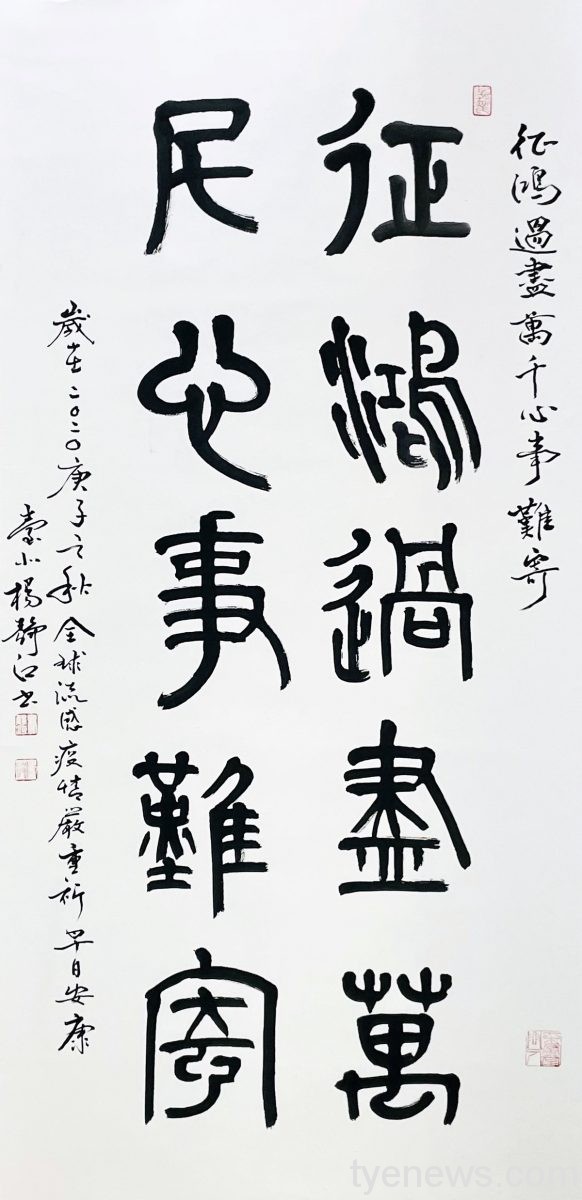 征鴻過盡萬千心事難寄
征鴻過盡萬
民心事難寄
歲在二〇二〇庚子之秋全球流感疫情嚴重祈早日安康
臺北楊靜江書
tyenews.com